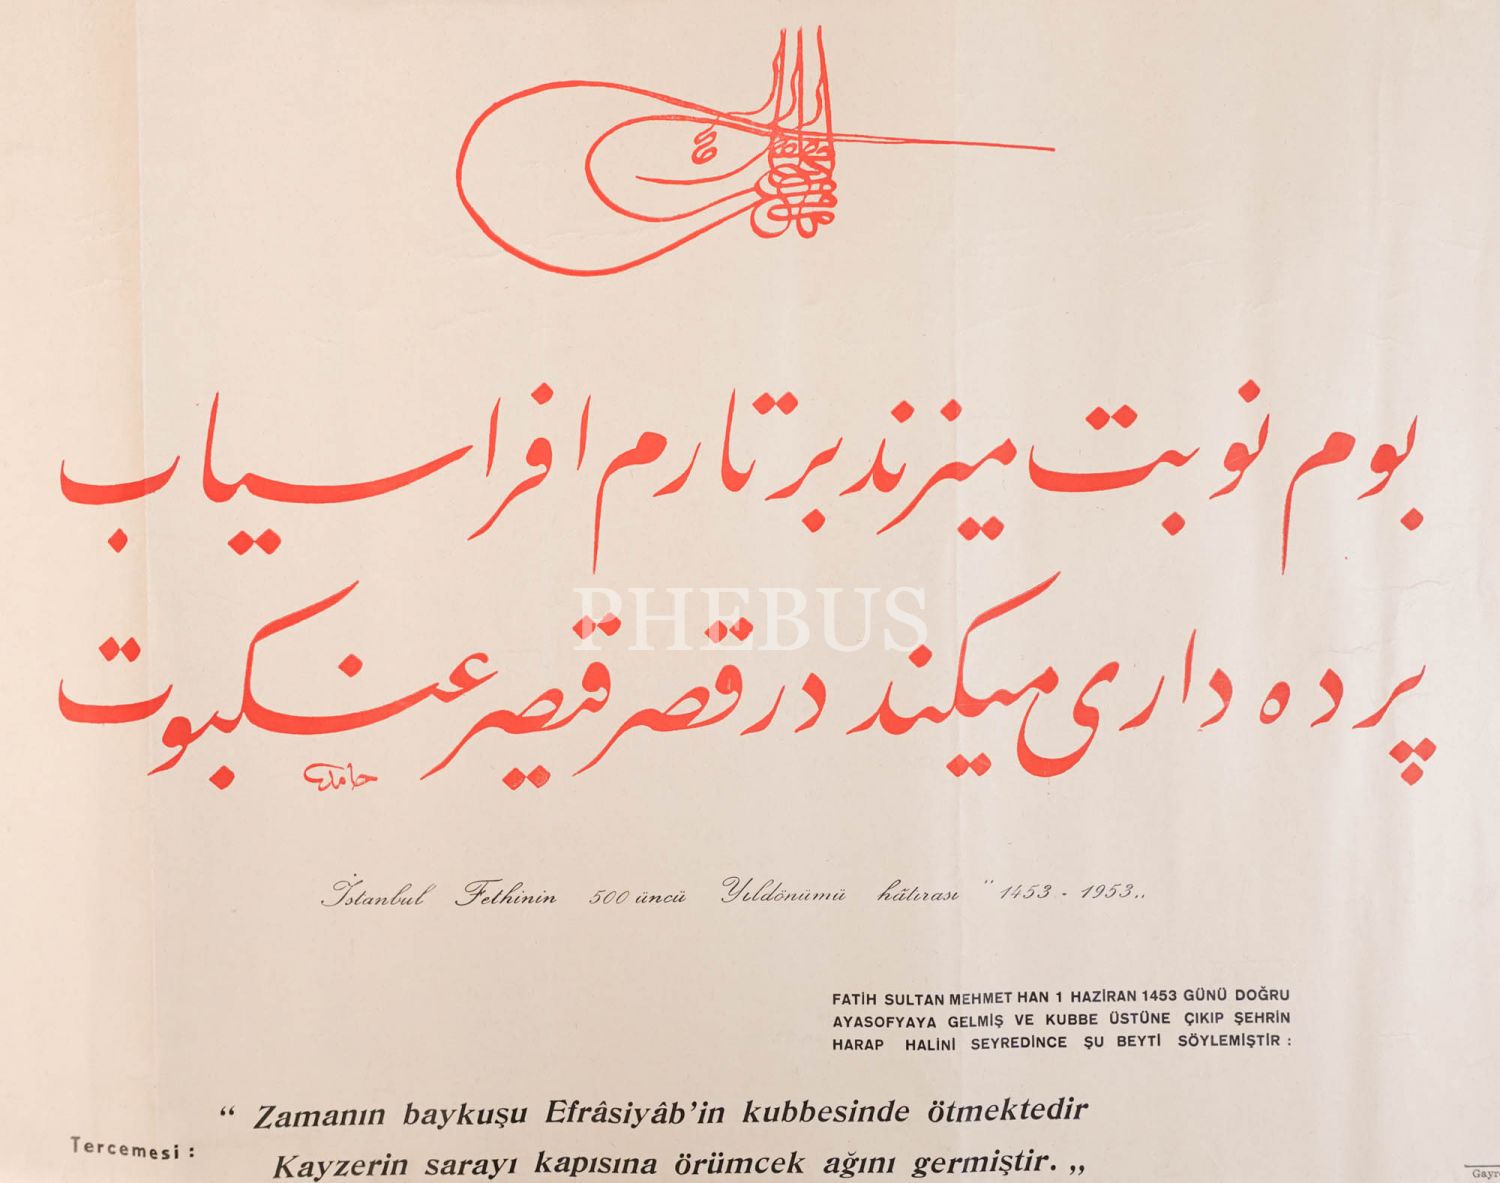 بوم نوبت میزند بر تارم افراسیاب
پرده داری میکند در قصر قیصر عنکبوت
حامد
PHEBUS
İstanbul Fethinin 500 üncü Yıldönümü hâtırası " 1453 - 1953 „
FATİH SULTAN MEHMET HAN 1 HAZİRAN 1453 GÜNÜ DOĞRU
AYASOFYAYA GELMİŞ VE KUBBE ÜSTÜNE ÇIKIP ŞEHRİN
HARAP HALİNİ SEYREDİNCE ŞU BEYTİ SÖYLEMİŞTİR :
Tercemesi :
“ Zamanın baykuşu Efrâsiyâb'in kubbesinde ötmektedir
Kayzerin sarayı kapısına örümcek ağını germiştir. „